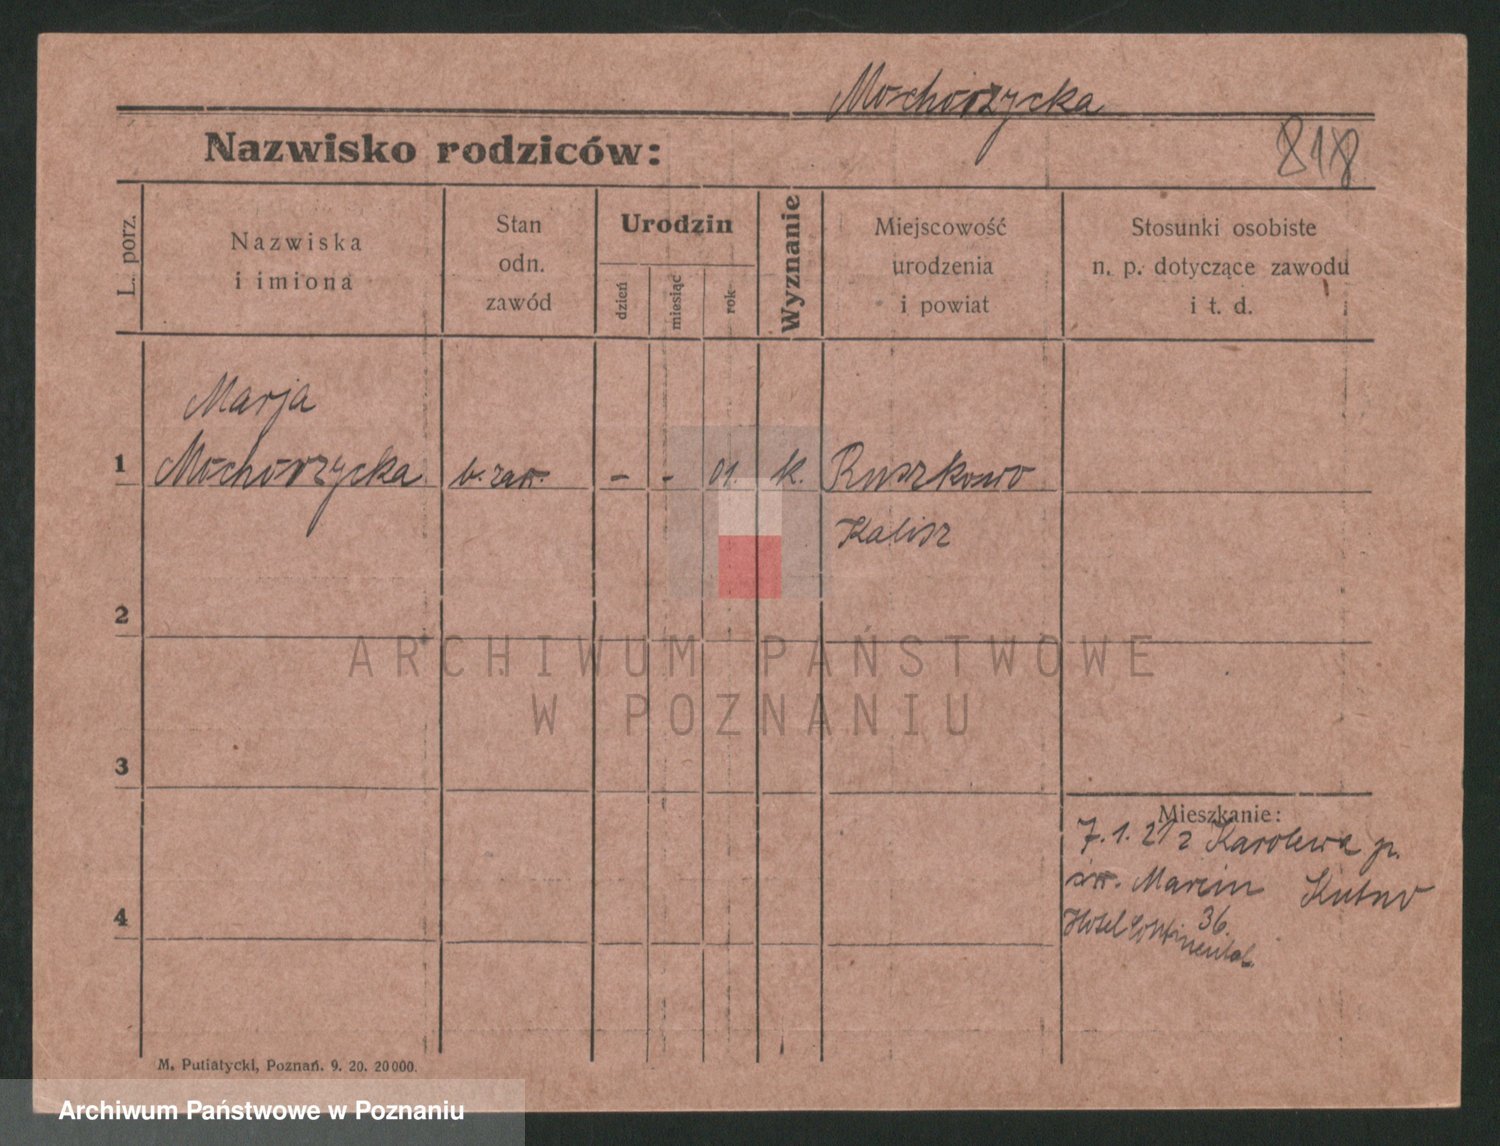 Mochorzycka
Nazwisko rodziców:
818
L. porz.
Nazwiska
i imiona
Stan
odn.
zawód
Urodzin
dzień
miesiąc
rok
Wyznanie
Miejscowość
urodzenia
i powiat
Stosunki osobiste
n. p. dotyczące zawodu
i t. d.
Marja
1 Mochorzycka b. zaw. - - 01. k. Ruszkowo
Kalisz
2
ARCHIWUM PAŃSTWOWE
W POZNANIU
3
Mieszkanie:
7.1.21 z Karolewa p.
św. Marcin Kutno
36.
Hotel Continental
4
M. Putiatycki, Poznań. 9. 20. 20000.
Archiwum Państwowe w Poznaniu